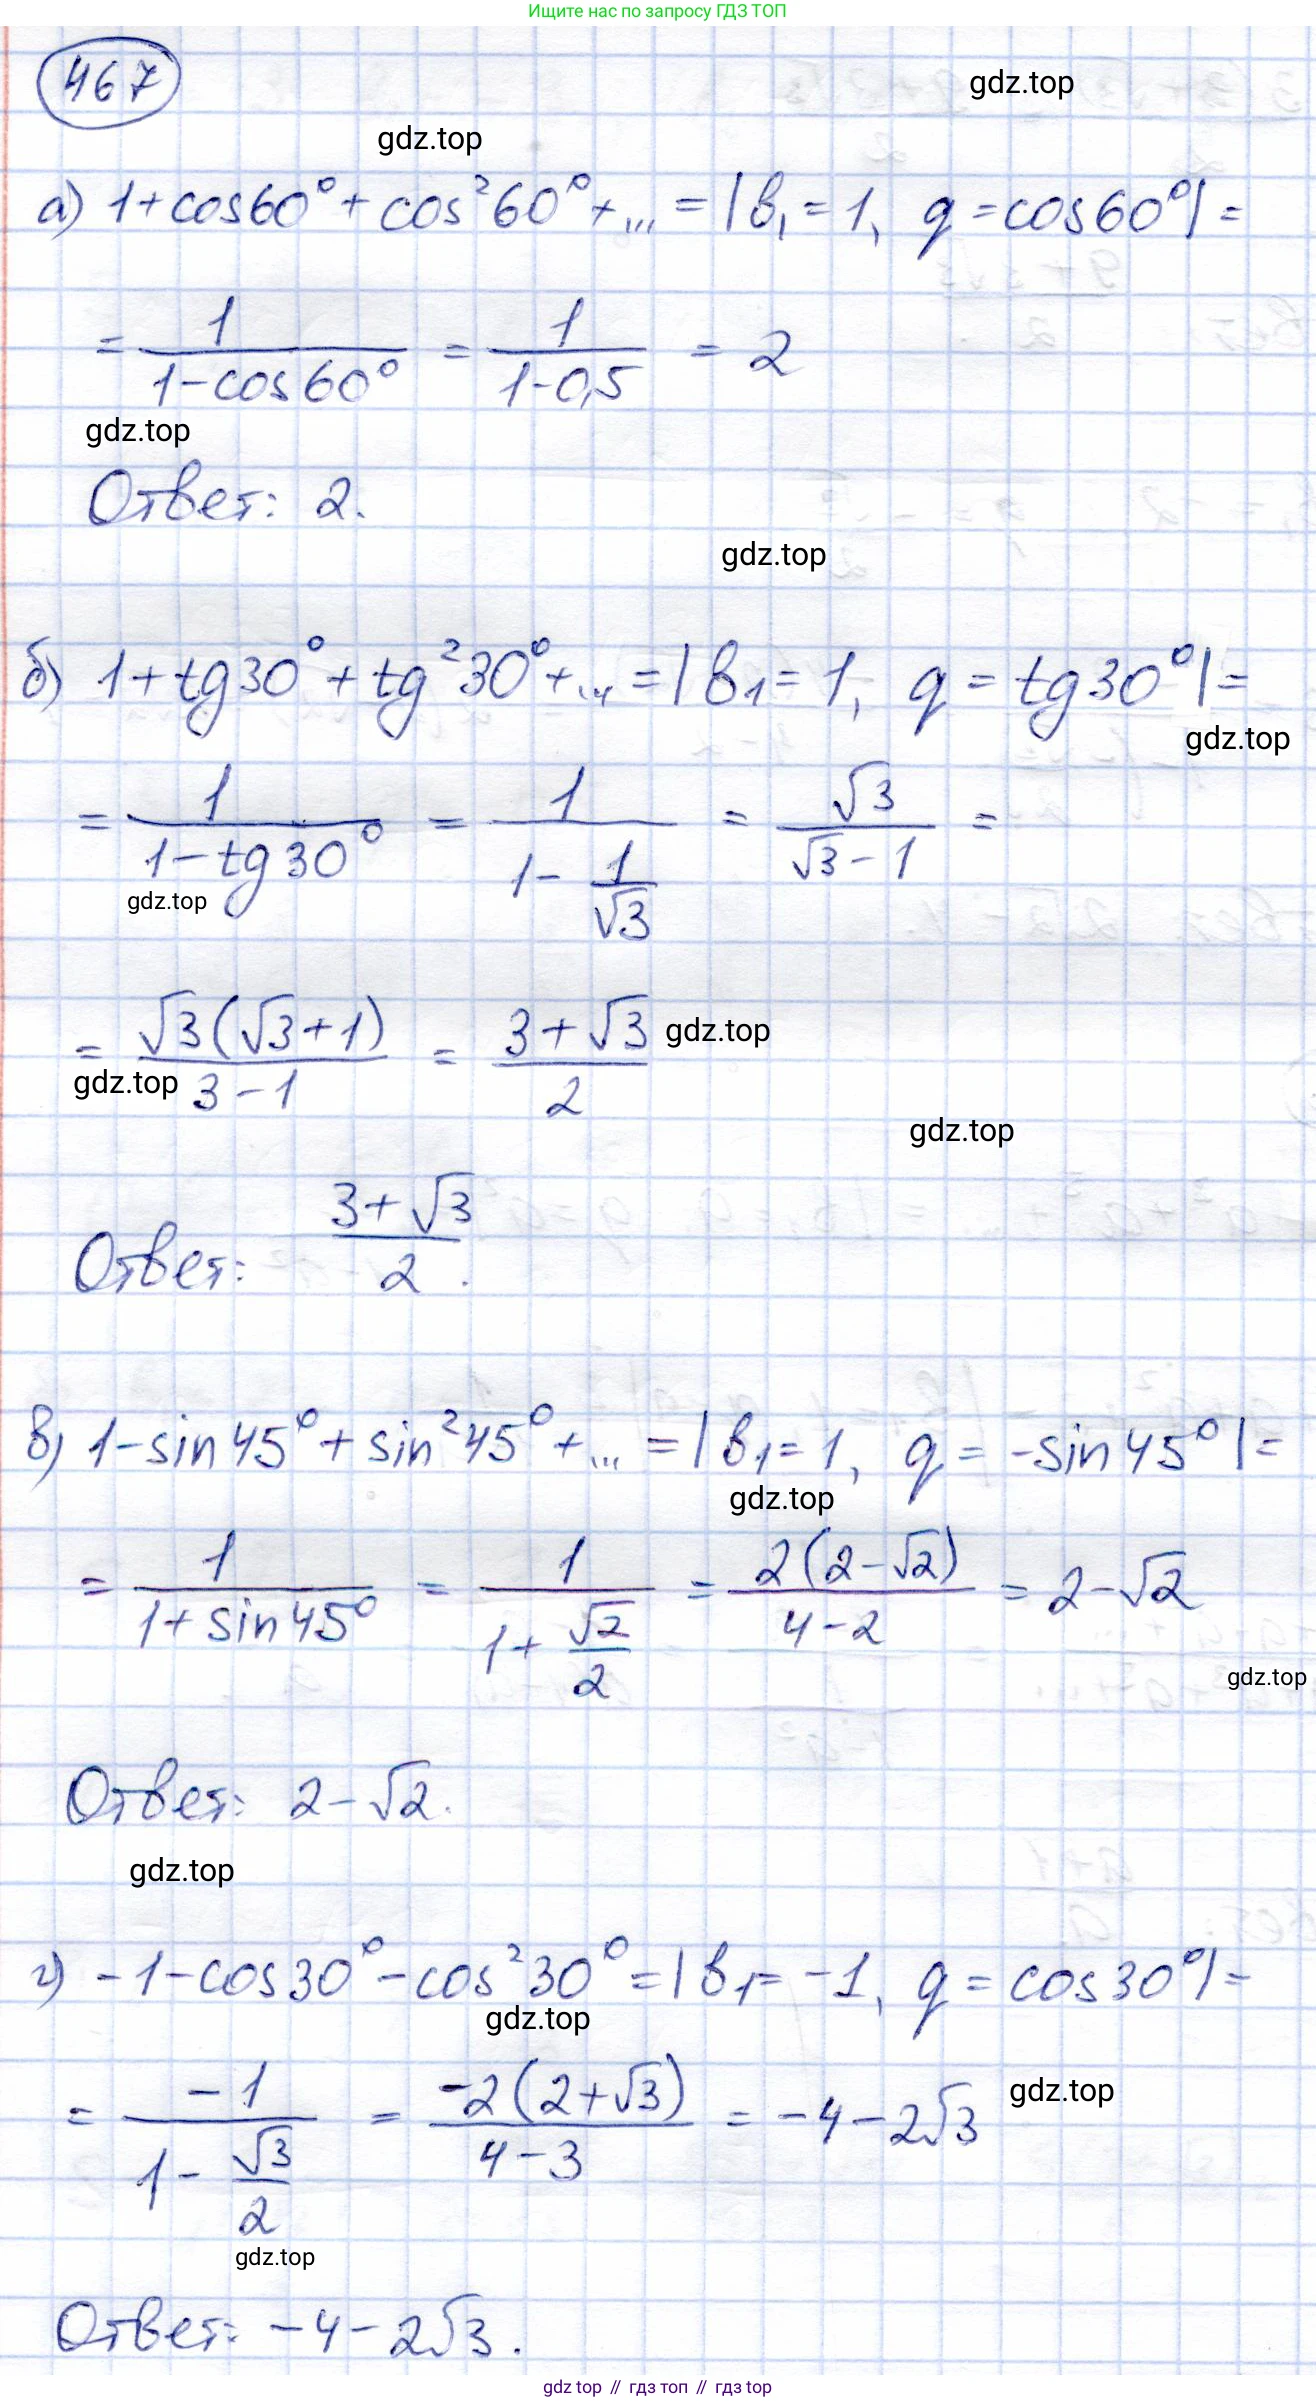 Ищите нас по запросу ГДЗ ТОП
467
gdz.top
gdz.top
а) 1+cos60°+cos²60°+... = |b₁=1, q=cos60°| =
= 1/(1-cos60°) = 1/(1-0,5) = 2
gdz.top
Ответ: 2.
gdz.top
б) 1+tg30°+tg²30°+... = |b₁=1, q=tg30°| =
gdz.top
= 1/(1-tg30°) = 1/(1-1/√3) = √3/(√3-1) =
gdz.top
= √3(√3+1)/(3-1) = (3+√3)/2
gdz.top
gdz.top
gdz.top
Ответ: (3+√3)/2.
в) 1-sin45°+sin²45°+... = |b₁=1, q=-sin45°| =
gdz.top
= 1/(1+sin45°) = 1/(1+√2/2) = 2(2-√2)/(4-2) = 2-√2
gdz.top
Ответ: 2-√2.
gdz.top
г) -1-cos30°-cos²30°=|b₁=-1, q=cos30°|=
gdz.top
= -1/(1-√3/2) = -2(2+√3)/(4-3) = -4-2√3
gdz.top
gdz.top
Ответ: -4-2√3.
gdz top // гдз топ // gdz top